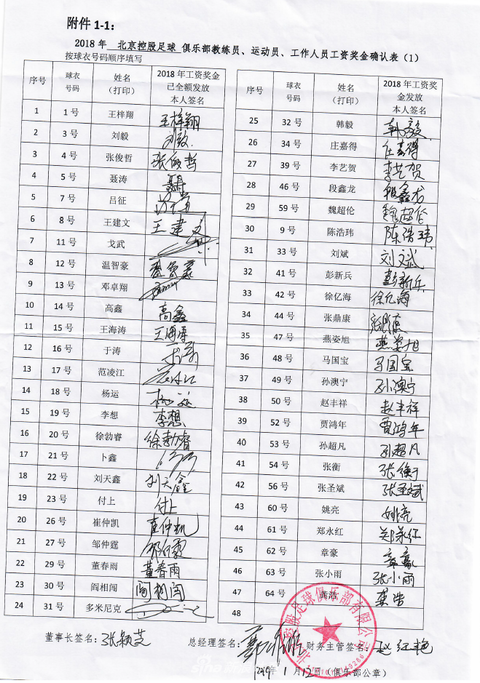 附件 1-1:
2018 年 北京控股足球 俱乐部教练员、运动员、工作人员工资奖金确认表（1）
按球衣号码顺序填写
序号 球衣号码 姓名（打印） 2018 年工资奖金已全额发放本人签名
1 1 号 王梓翔 王梓翔
2 3 号 刘毅 刘毅
3 4 号 张俊哲 张俊哲
4 5 号 聂涛
5 7 号 吕征
6 8 号 王建文 王建文
7 11 号 戈武
8 12 号 温智豪
9 13 号 邓卓翔
10 14 号 高鑫 高鑫
11 15 号 王海涛 王海涛
12 16 号 于涛 于涛
13 17 号 范凌江
14 18 号 杨运 杨运
15 19 号 李想 李想
16 20 号 徐勃睿
17 21 号 卜鑫
18 22 号 刘天鑫 刘天鑫
19 23 号 付上 付上
20 26 号 崔仲凯 崔仲凯
21 27 号 邹仲霆
22 29 号 董春雨 董春雨
23 30 号 阎相闯 阎相闯
24 31 号 多米尼克
序号 球衣号码 姓名（打印） 2018 年工资奖金发放本人签名
25 32 号 韩毅 韩毅
26 34 号 庄嘉得 庄嘉得
27 39 号 李艺贺 李艺贺
28 46 号 段鑫龙 段鑫龙
29 59 号 魏超伦 魏超伦
30 9 号 陈浩玮 陈浩玮
31 33 号 刘斌 刘斌
32 41 号 彭新兵 彭新兵
33 42 号 徐亿海 徐亿海
34 44 号 张鼎康
35 47 号 燕姿旭 燕姿旭
36 48 号 马国宝 马国宝
37 49 号 孙澳宁 孙澳宁
38 50 号 赵丰祥 赵丰祥
39 52 号 贾鸿年 贾鸿年
40 53 号 孙超凡 孙超凡
41 54 号 张衡 张衡
42 56 号 张圣斌 张圣斌
43 60 号 姚亮 姚亮
44 61 号 郑永红
45 62 号 章豪 章豪
46 63 号 张小雨 张小雨
47 64 号 龚浩 龚浩
48
董事长签名: 张颖芝 总经理签名: 财务主管签名: 赵红艳
1 月 日（俱乐部公章）